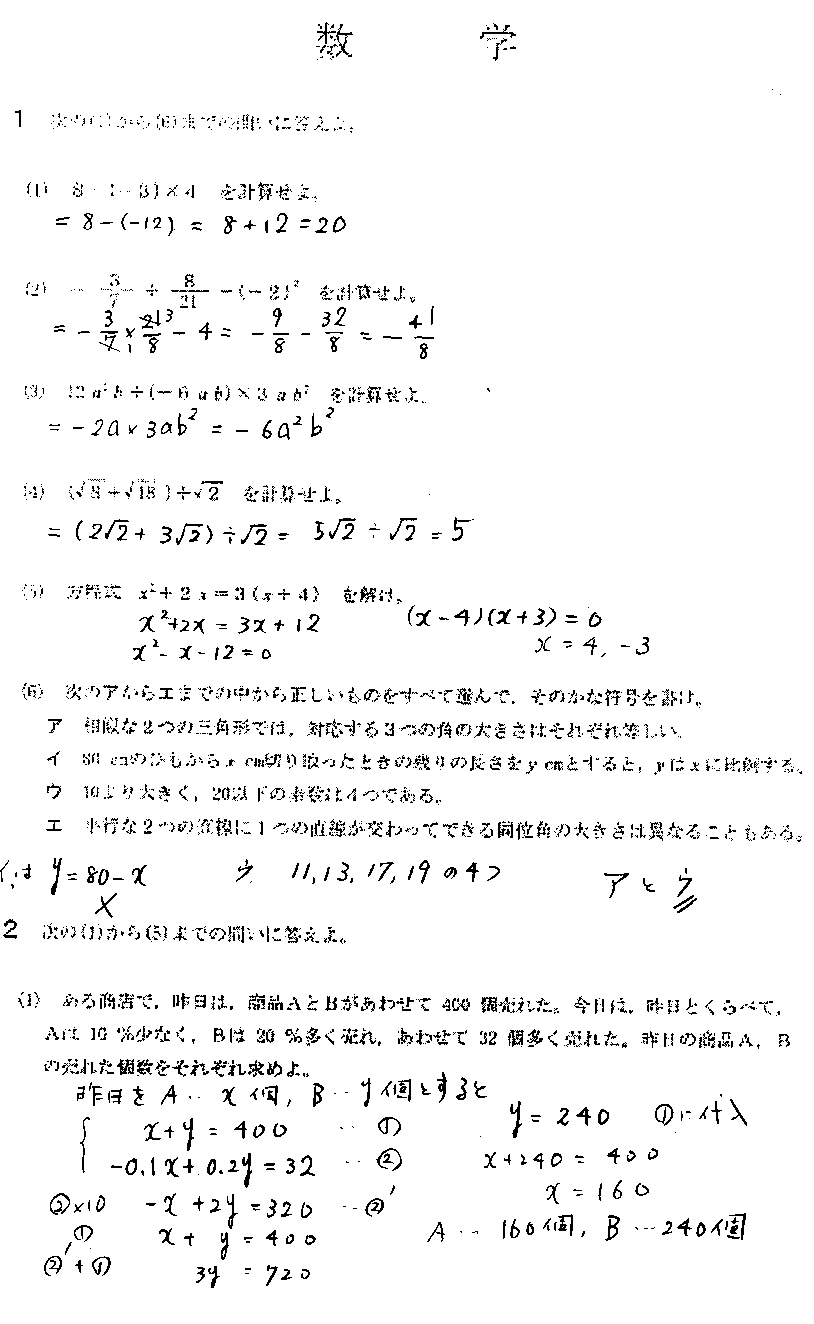 数 学
1 次の(1)から(6)までの問いに答えよ。
(1) 8-(-3)×4 を計算せよ。
= 8-(-12) = 8+12=20
(2) -3/7 ÷ 8/21 -(-2)² を計算せよ。
= -3/7 × 21/8 - 4 = -9/8 - 32/8 = -41/8
1 3
(3) 12a²b÷(-6ab)×3ab² を計算せよ。
= -2a×3ab² = -6a²b²
(4) (√8+√18)÷√2 を計算せよ。
= (2√2+3√2)÷√2 = 5√2÷√2 = 5
(5) 方程式 x²+2x=3(x+4) を解け。
x²+2x = 3x+12 (x-4)(x+3)=0
x²-x-12=0 x=4, -3
(6) 次のアからエまでの中から正しいものをすべて選んで、そのかな符号を書け。
ア 相似な2つの三角形では、対応する3つの角の大きさはそれぞれ等しい。
イ 80 cmのひもからx cm切り取ったときの残りの長さをy cmとすると、yはxに比例する。
ウ 10より大きく、20以下の素数は4つである。
エ 平行な2つの直線に1つの直線が交わってできる同位角の大きさは異なることもある。
イは y=80-x ウ 11,13,17,19の4つ アとウ
×
2 次の(1)から(5)までの問いに答えよ。
(1) ある商店で、昨日は、商品AとBがあわせて 400 個売れた。今日は、昨日とくらべて、
Aは 10 %少なく、Bは 20 %多く売れ、あわせて 32 個多く売れた。昨日の商品A、B
の売れた個数をそれぞれ求めよ。
昨日をA…x個, B…y個とすると
x+y=400 …① y=240 ①に代入
-0.1x+0.2y=32 …② x+240=400
②×10 -x+2y=320 …②' x=160
① x+y=400 A…160個, B…240個
②'+① 3y=720